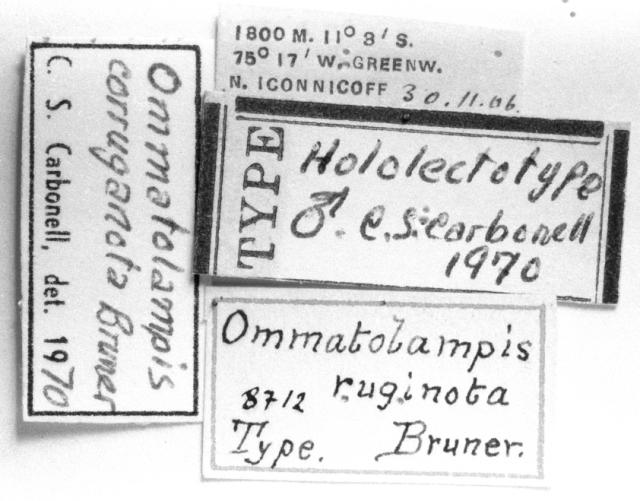 1800 M. 11° 3' S.
75° 17' W. GREENW.
N. ICONNICOFF 30.11.06.
TYPE
Hololectotype
♂. C.S. Carbonell
1970
Ommatolampis
corruganota Bruner
C. S. Carbonell, det. 1970
Ommatolampis
ruginota
8712
Type. Bruner.